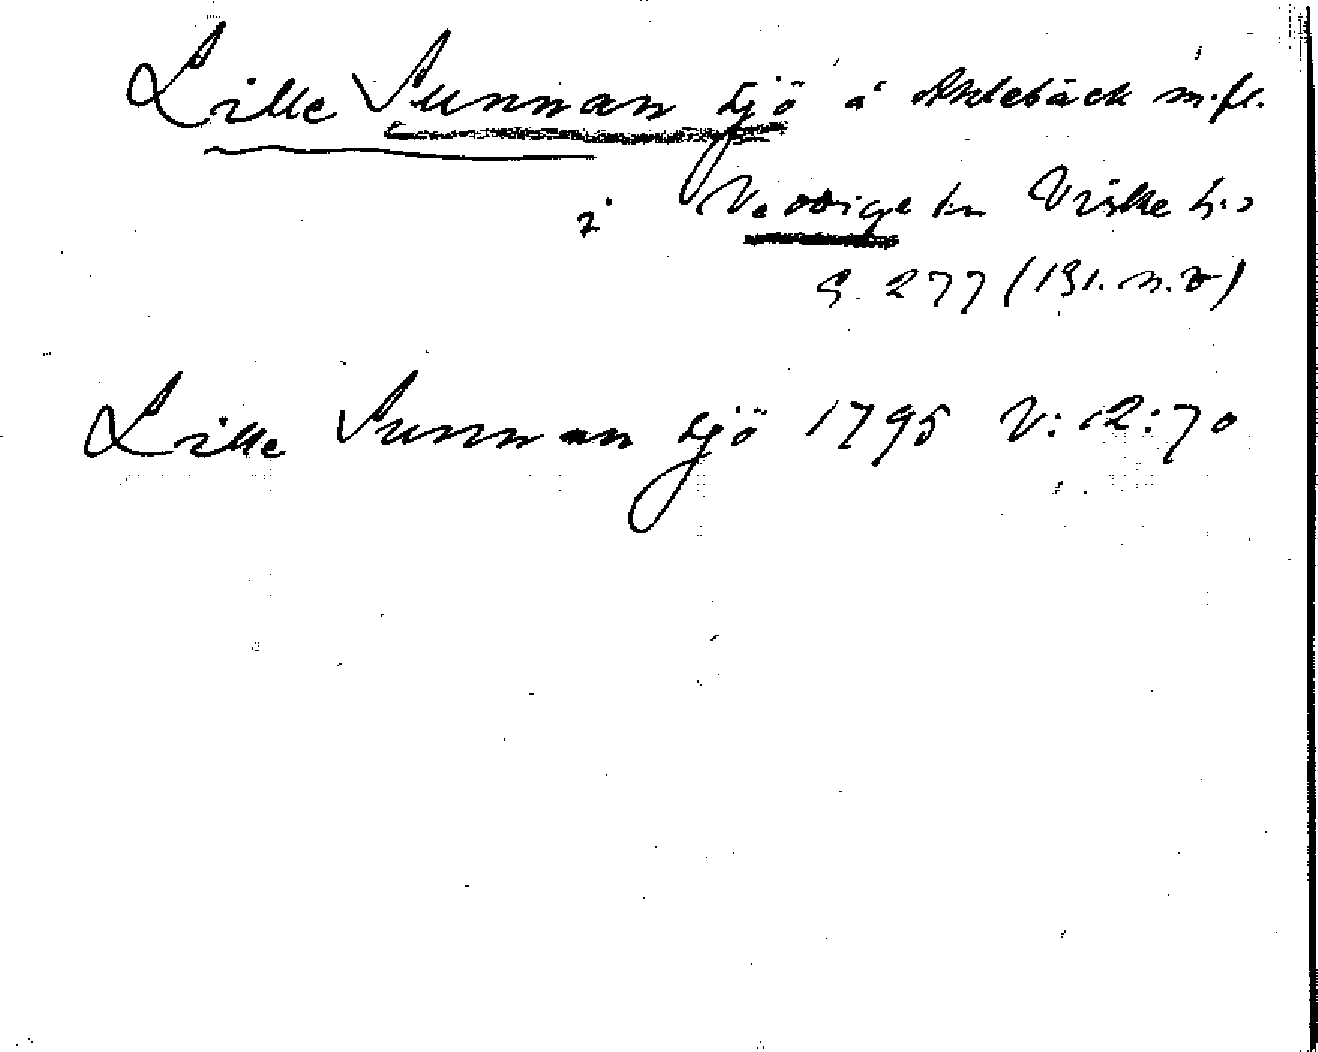 Lille Sunnan sjö å Ahlebäck m.fl.
i Veddige sn Viske h:d
S. 277 (131. n.v)
Lille Sunnan sjö 1795 V:12:70